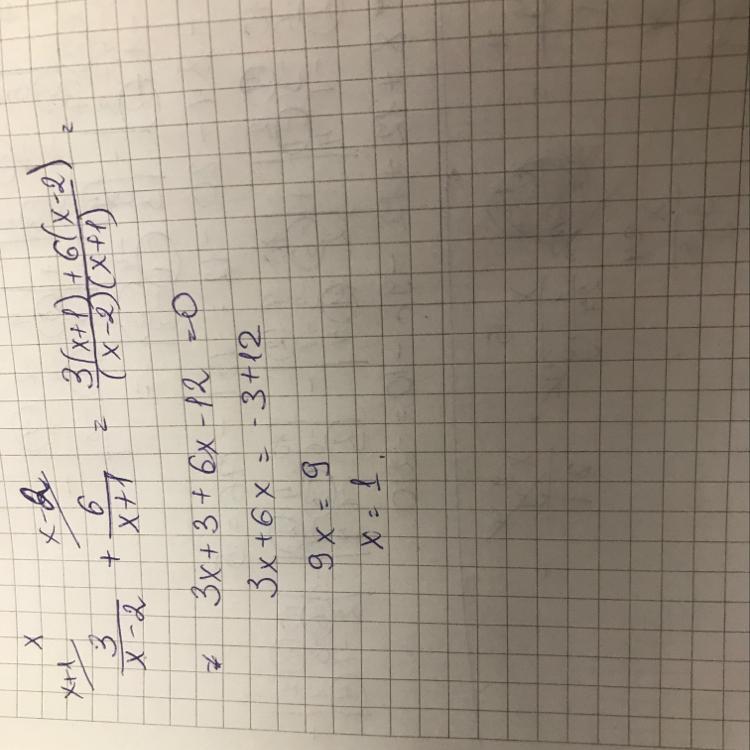 x
x+1/ x-2/
3/(x-2) + 6/(x+1) = (3(x+1)+6(x-2))/((x-2)(x+1)) =
3x+3+6x-12 =0
3x+6x = -3+12
9x = 9
x = 1.